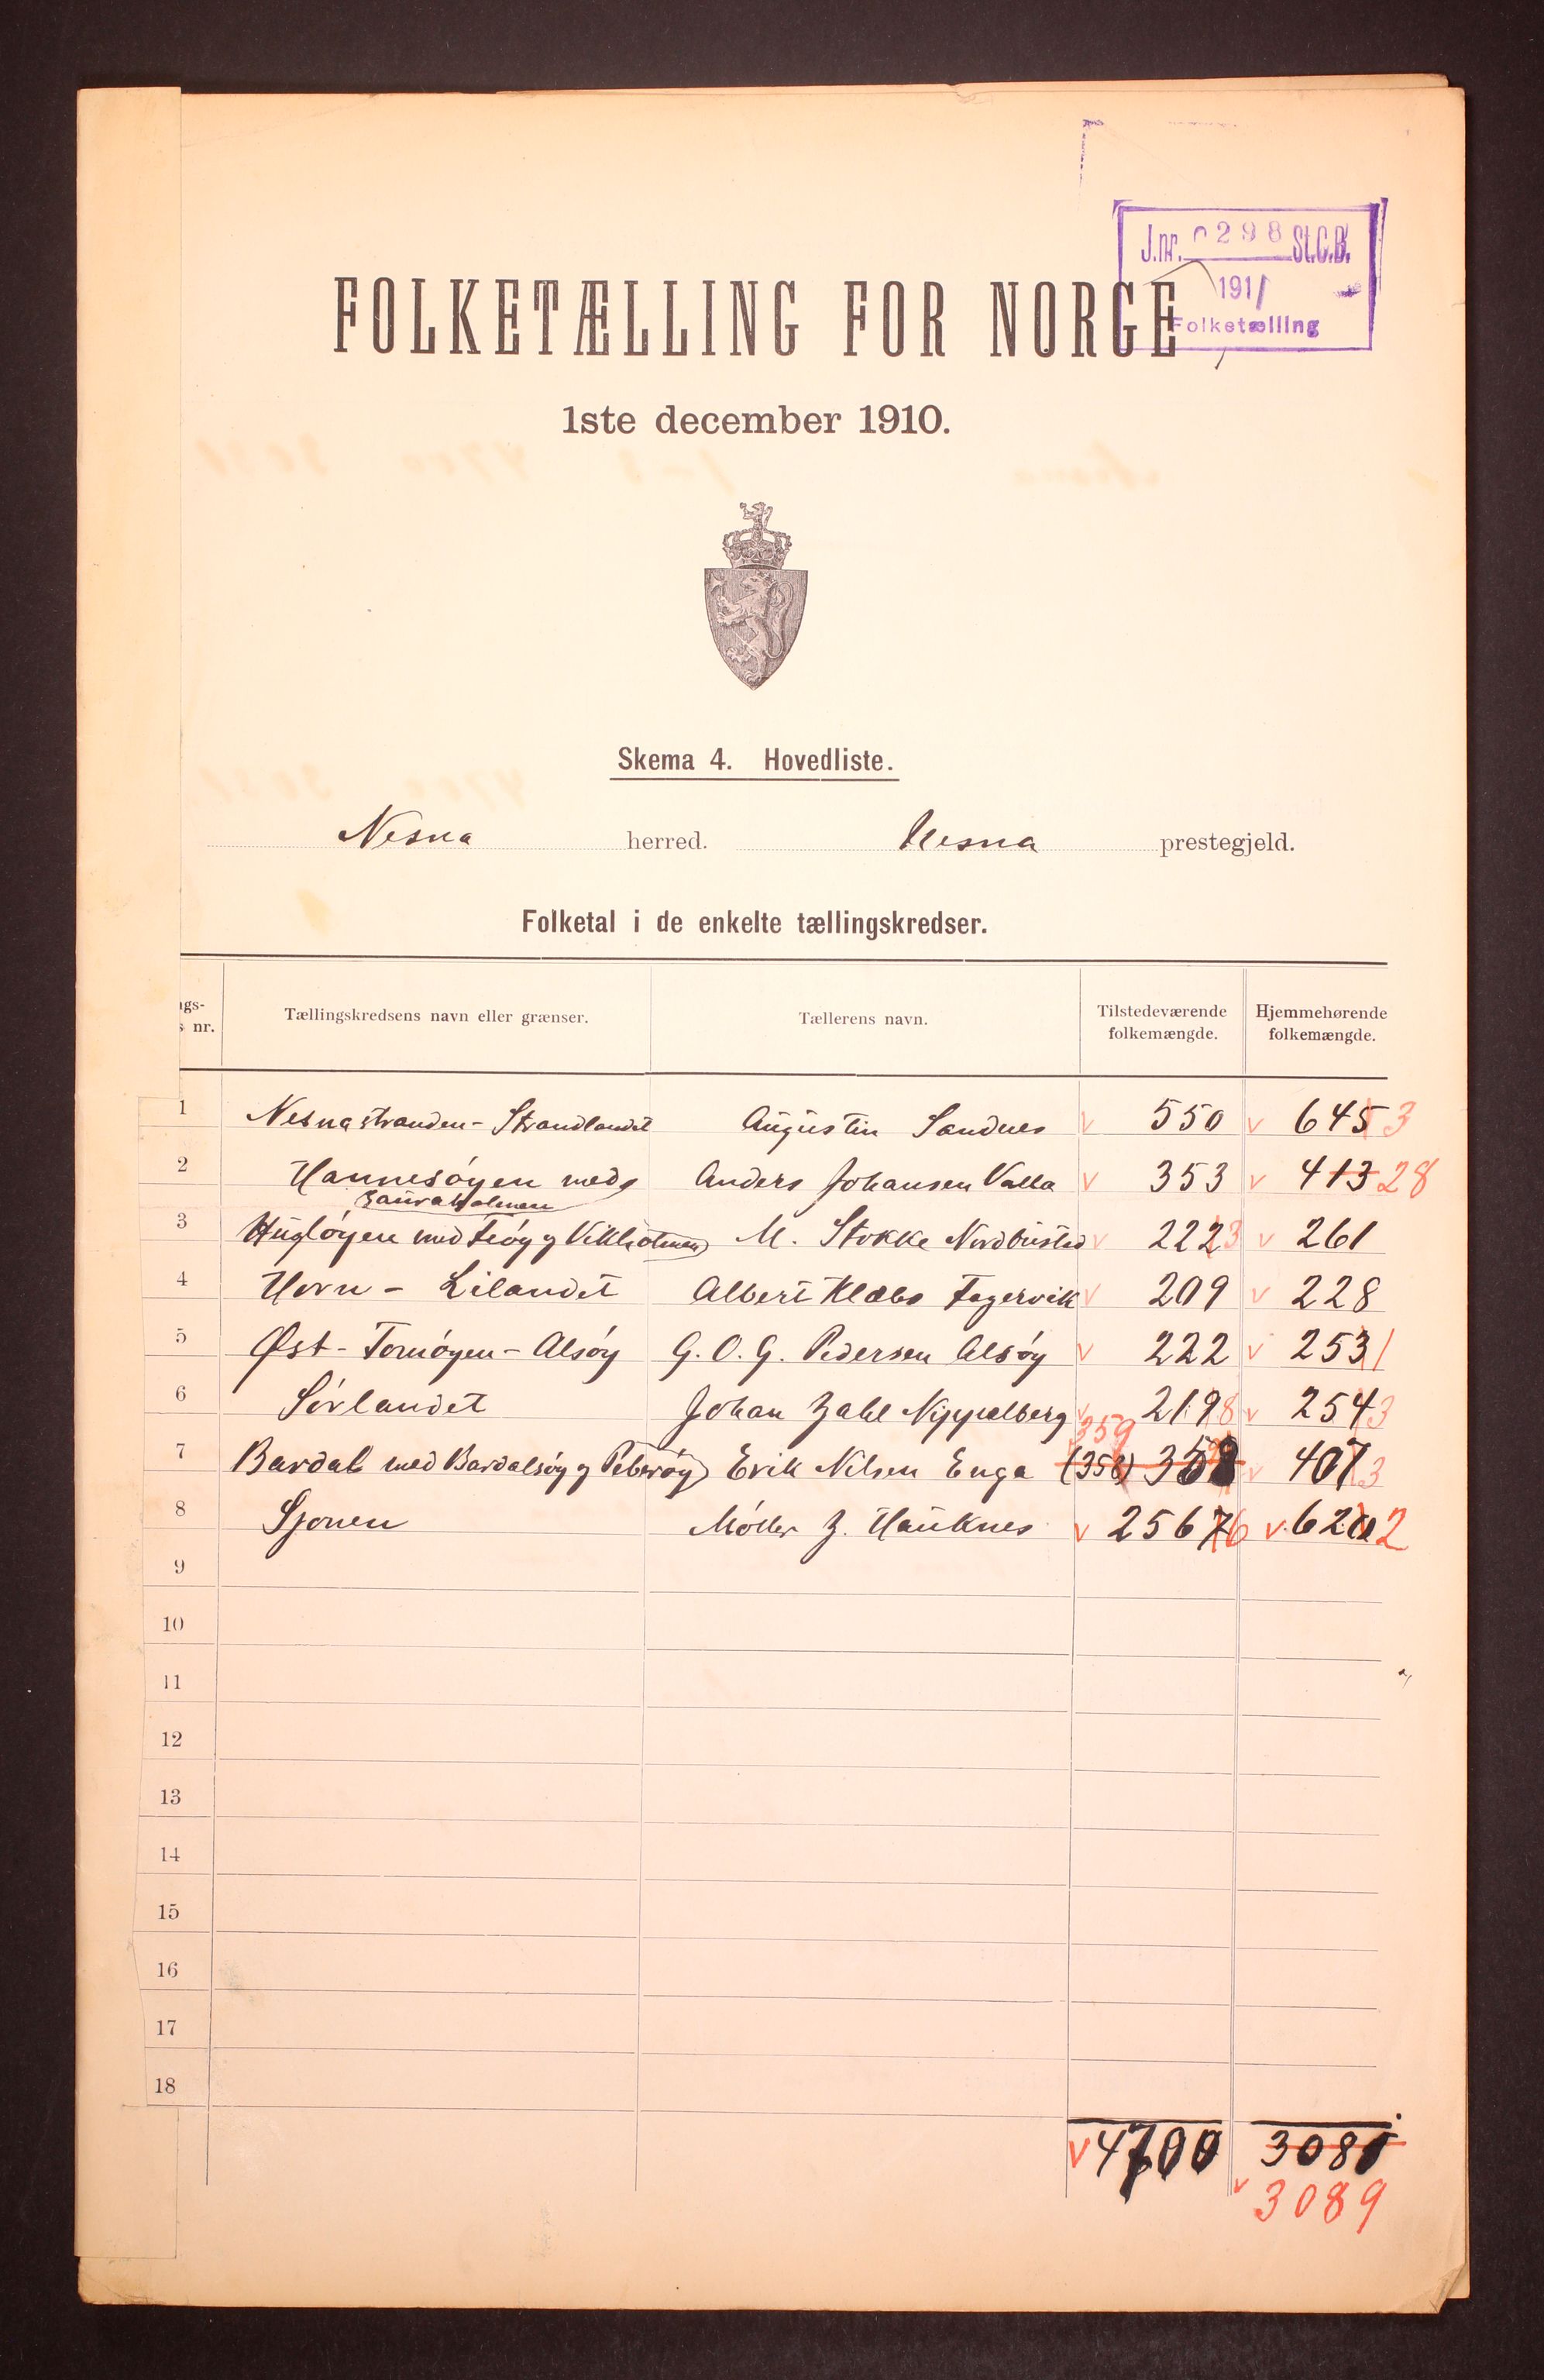 J.nr. 0298 St.C.B.
1911
Folketælling
FOLKETÆLLING FOR NORGE
1ste december 1910.
Skema 4. Hovedliste.
Nesna herred. Nesna prestegjeld.
Folketal i de enkelte tællingskredser.
ngs-
s nr. Tællingskredsens navn eller grænser. Tællerens navn. Tilstedeværende folkemængde. Hjemmehørende folkemængde.
1 Nesnastranden - Strandlandet Augustin Sandnes v 550 v 645 3
2 Hannesöyen med Anders Johansen Valla v 353 v 413 28
Zauraholmen
3 Huglöyen med Teöy g Vikholmen M. Stokke Nordbusted v 222 3 v 261
4 Horn - Lilandet Albert Klæbo Fagervik v 209 v 228
5 Øst-Tomöyen - Alsöy G. O. G. Pedersen Alsöy v 222 v 253 1
6 Sörlandet Johan Zahl Nippelberg v 219 8 v 254 3
359
7 Bardal med Bardalsöy g Peberöy Erik Nilsen Enga (358) 358 v 407 3
8 Sjonen Möller Z. Hauknes v 2567 6 v 620 2
9
10
11
12
13
14
15
16
17
18
v 4700 3085
v 3089